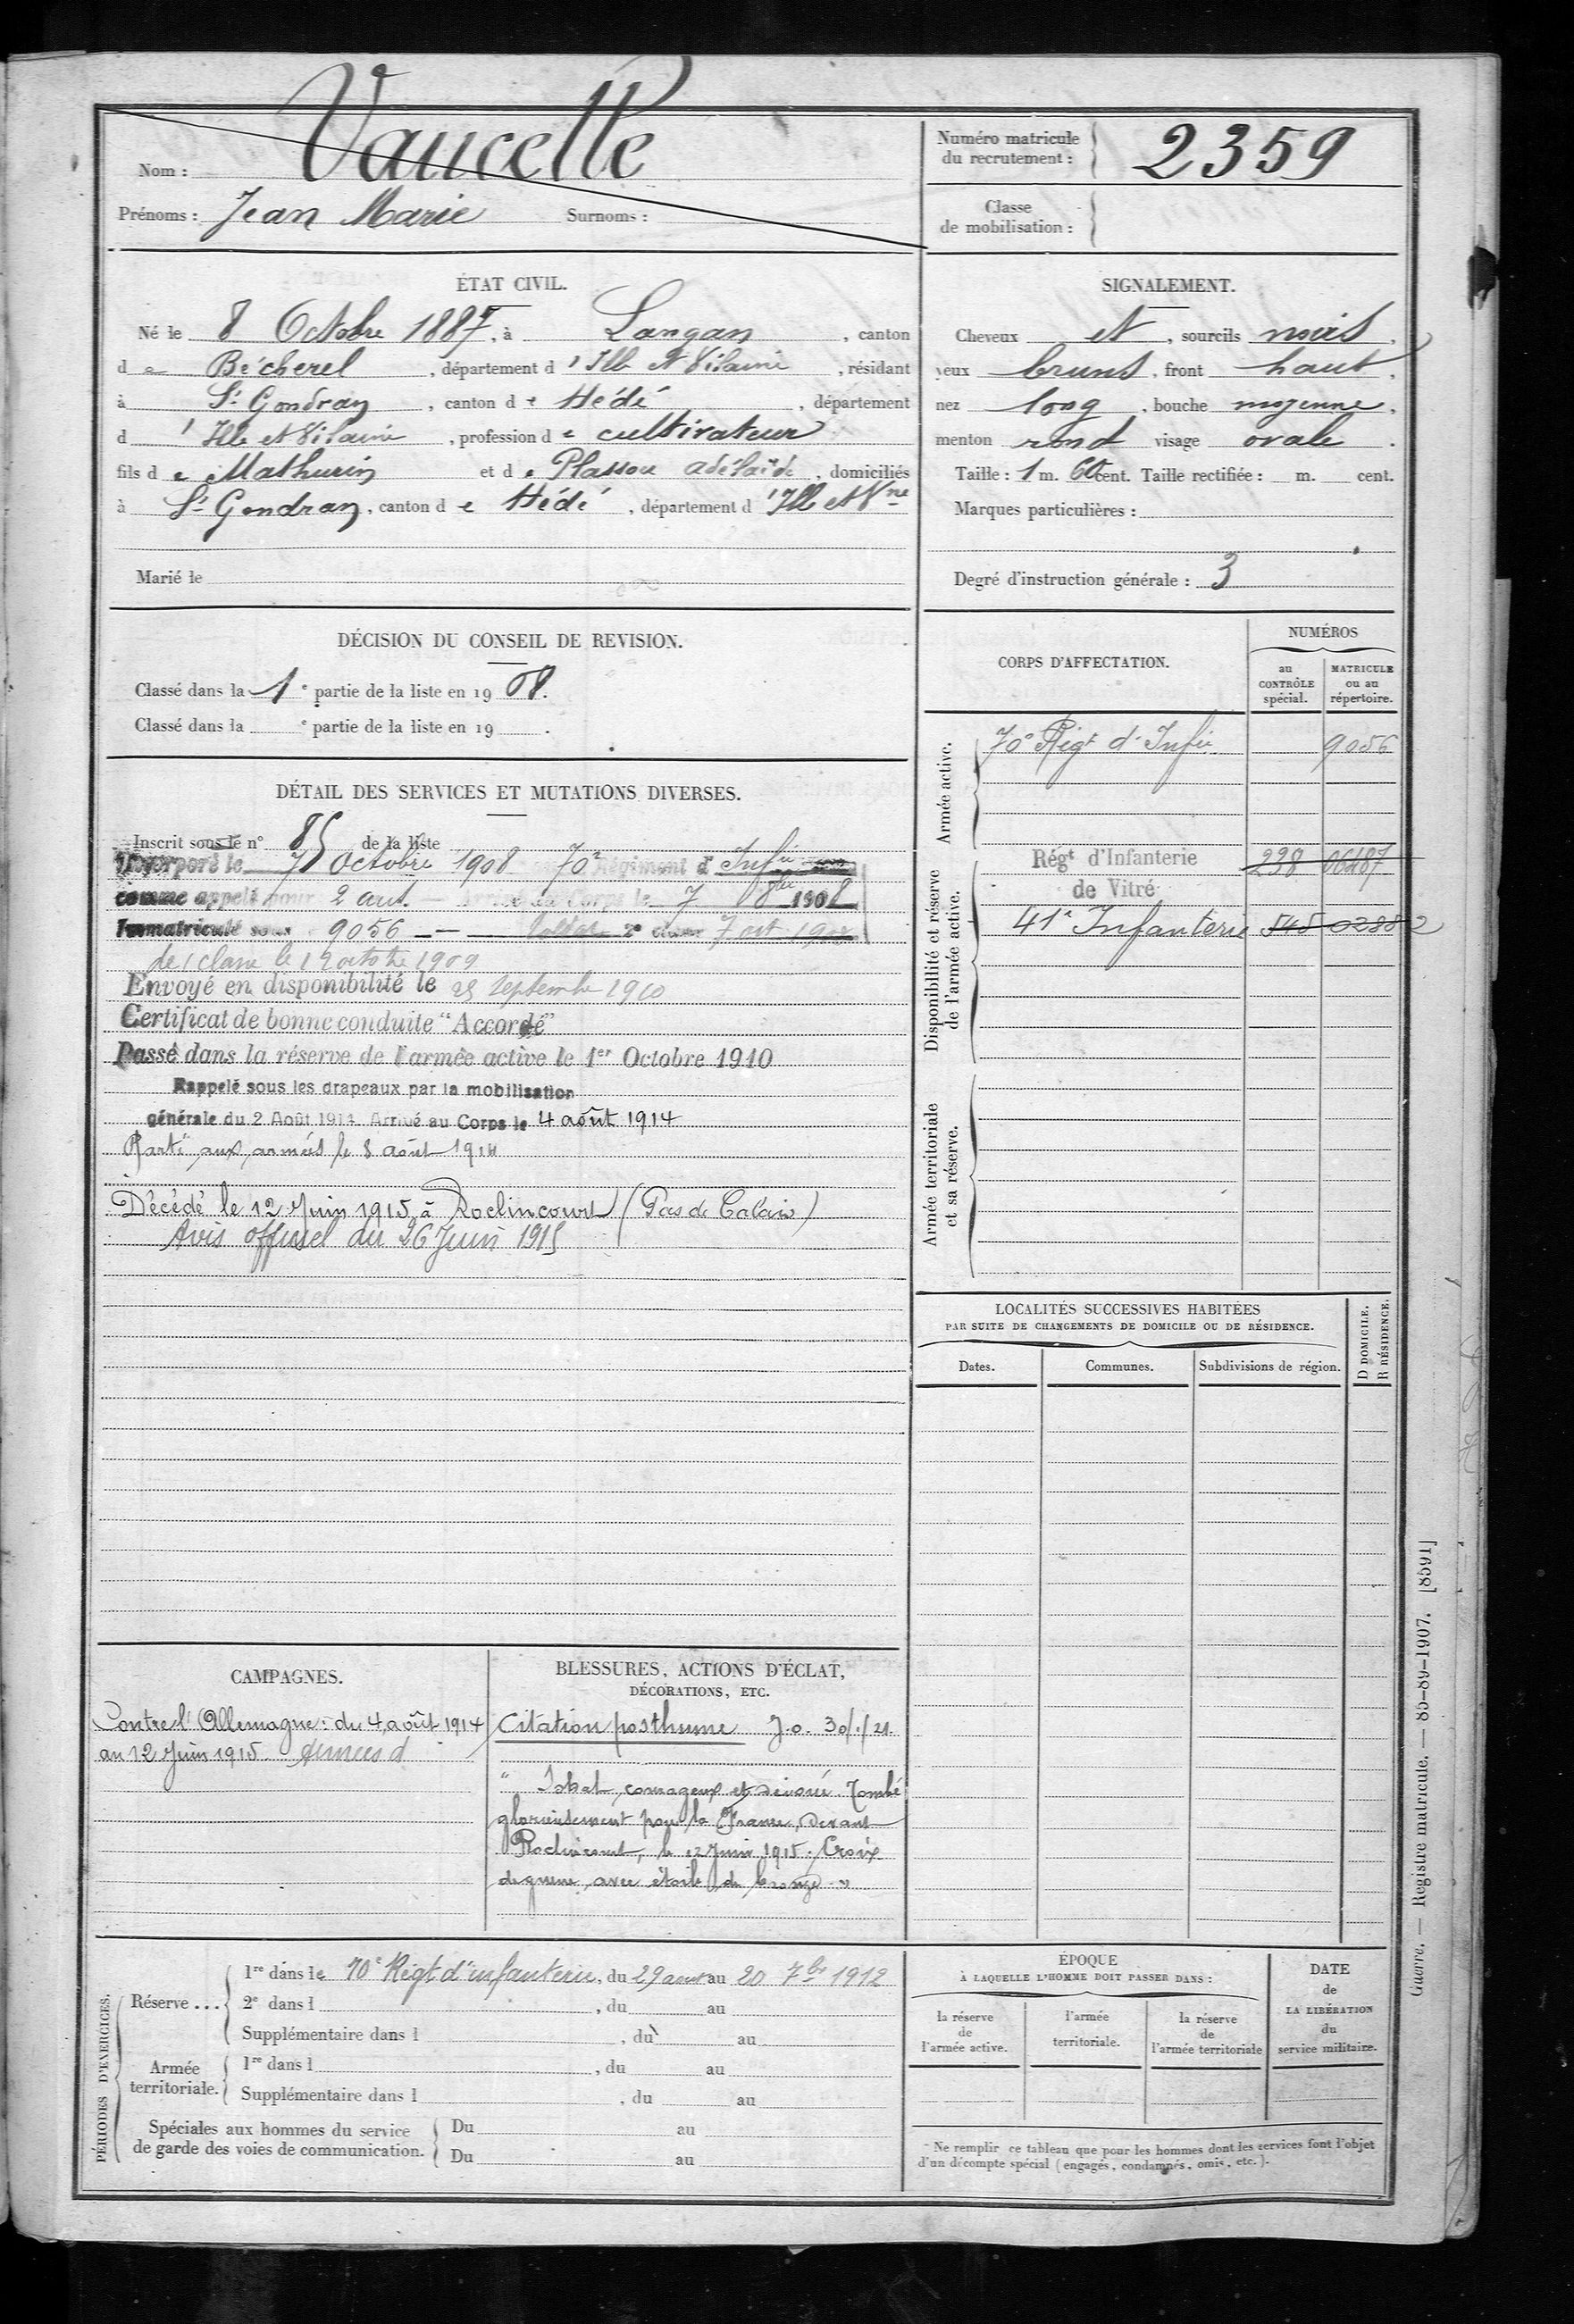 Nom : Vaucelle
Prénoms : Jean Marie Surnoms :
Numéro matricule
du recrutement : 2359
Classe
de mobilisation :
ÉTAT CIVIL.
Né le 8 Octobre 1887, à Langan, canton
de Bécherel, département d'Ille et Vilaine, résidant
à St Gondran, canton de Hédé, département
d'Ille et Vilaine, profession de cultivateur
fils de Mathurin et de Plassou Adélaïde, domiciliés
à St Gondran, canton de Hédé, département d'Ille et Vne
Marié le
SIGNALEMENT.
Cheveux et, sourcils noirs,
yeux bruns, front haut,
nez long, bouche moyenne,
menton rond visage ovale.
Taille : 1 m. 60 cent. Taille rectifiée : m. cent.
Marques particulières :
Degré d'instruction générale : 3
DÉCISION DU CONSEIL DE REVISION.
Classé dans la 1e partie de la liste en 1908.
Classé dans la e partie de la liste en 19 .
DÉTAIL DES SERVICES ET MUTATIONS DIVERSES.
Inscrit sous le n° 85 de la liste
Incorporé le 7 Octobre 1908 70e Régiment d'Infie
comme appelé pour 2 ans. Arrivé au Corps le 7 8bre 1908
Immatriculé sous 9056 Soldat 2e classe 7 oct 1908
de 1 classe le 12 octobre 1909
Envoyé en disponibilité le 25 septembre 1910
Certificat de bonne conduite "Accordé"
Passé dans la réserve de l'armée active le 1er Octobre 1910
Rappelé sous les drapeaux par la mobilisation
générale du 2 Août 1914 Arrivé au Corps le 4 août 1914
Parti aux armées le 8 août 1914
Décédé le 12 Juin 1915 à Roclincourt (Pas de Calais)
Avis officiel du 26 Juin 1915
CORPS D'AFFECTATION.
NUMÉROS
au
CONTRÔLE
spécial.
MATRICULE
ou au
répertoire.
Armée active.
70e Régt d'Infie 9056
Disponibilité et réserve
de l'armée active.
Régt d'Infanterie 238 06487
de Vitré
41e Infanterie 545 02882
Armée territoriale
et sa réserve.
LOCALITÉS SUCCESSIVES HABITÉES
PAR SUITE DE CHANGEMENTS DE DOMICILE OU DE RÉSIDENCE.
Dates. Communes. Subdivisions de région.
D DOMICILE.
R RÉSIDENCE.
CAMPAGNES.
Contre l'Allemagne : du 4 août 1914
au 12 Juin 1915 armées d
BLESSURES, ACTIONS D'ÉCLAT,
DÉCORATIONS, ETC.
Citation posthume J.o. 30/./21.
" Soldat courageux et dévoué. Tombé
glorieusement pour la France, devant
Roclincourt, le 12 Juin 1915. Croix
de guerre avec étoile de bronze "
PÉRIODES D'EXERCICES.
Réserve ...
1re dans le 70e Régt d'infanterie, du 29 aout au 20 7bre 1912
2e dans l , du au
Supplémentaire dans l , du au
Armée
territoriale.
1re dans l , du au
Supplémentaire dans l , du au
Spéciales aux hommes du service
de garde des voies de communication.
Du au
Du au
ÉPOQUE
À LAQUELLE L'HOMME DOIT PASSER DANS :
la réserve
de
l'armée active.
l'armée
territoriale.
la réserve
de
l'armée territoriale
DATE
de
LA LIBÉRATION
du
service militaire.
Ne remplir ce tableau que pour les hommes dont les services font l'objet
d'un décompte spécial (engagés, condamnés, omis, etc.).
Guerre. — Registre matricule. — 85-89-1907. [8591]